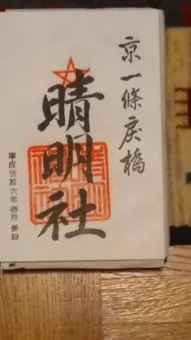 京一條戻橋
晴明社
平成弐拾六年壱月參日